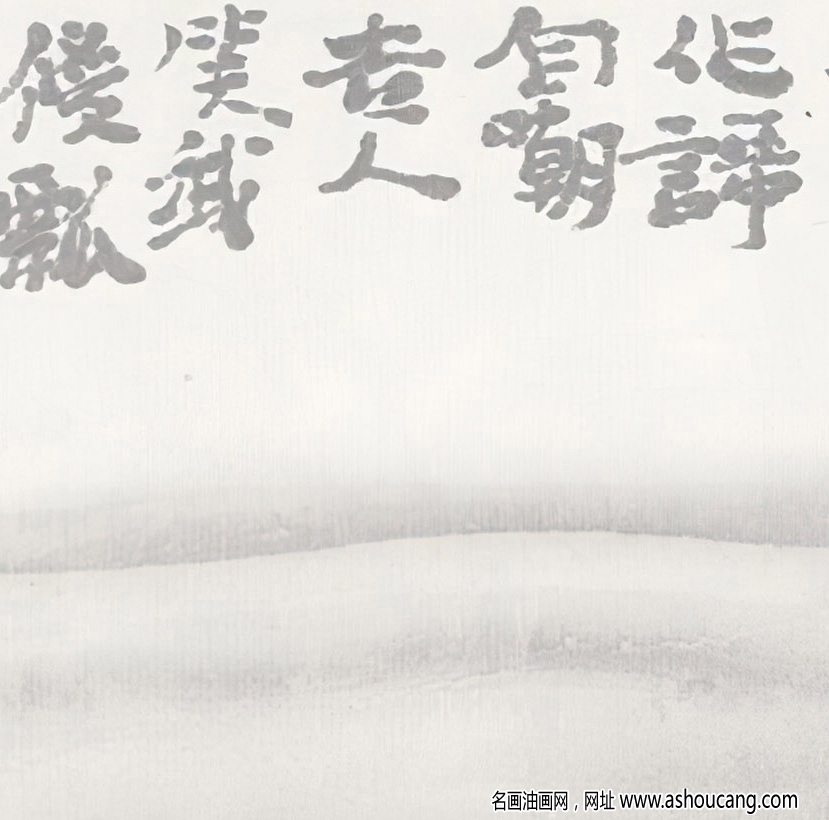 化諦
嘲
老人
笑我
飄
名画油画网，网址 www.ashoucang.com